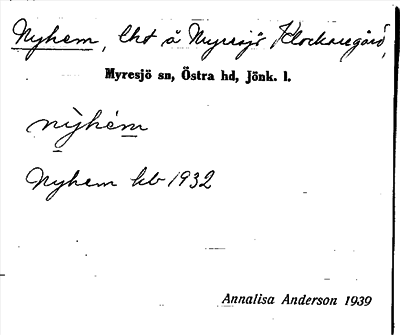 Nyhem, lht å Myresjö Klockaregård,
Myresjö sn, Östra hd, Jönk. l.
ny̆hém
Nyhem kb 1932
Annalisa Anderson 1939